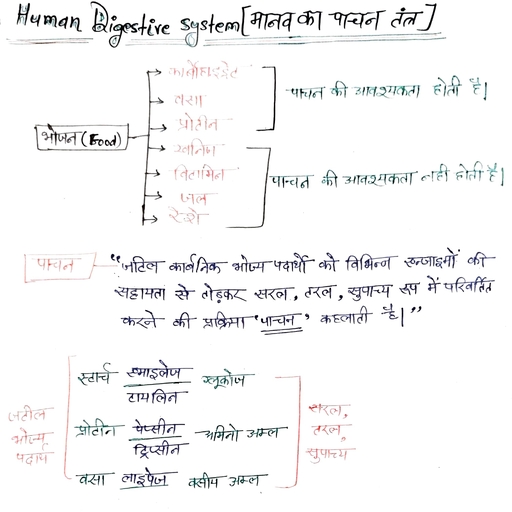 Human Digestive system [मानव का पाचन तंत्र]
कार्बोहाइड्रेट
वसा
प्रोटीन
पाचन की आवश्यकता होती है।
भोजन (Food)
खनिज
विटामिन
जल
रेशे
पाचन की आवश्यकता नही होती है।
पाचन
"जटिल कार्बनिक भोज्य पदार्थो को विभिन्न एन्जाइमों की
सहायता से तोड़कर सरल, तरल, सुपाच्य रूप में परिवर्तित
करने की प्रक्रिया 'पाचन' कहलाती है।"
जटिल
भोज्य
पदार्थ
स्टार्च एमाइलेज ग्लूकोज
टायलिन
प्रोटीन पेप्सीन अमिनो अम्ल
ट्रिप्सीन
वसा लाइपेज वसीय अम्ल
सरल,
तरल,
सुपाच्य